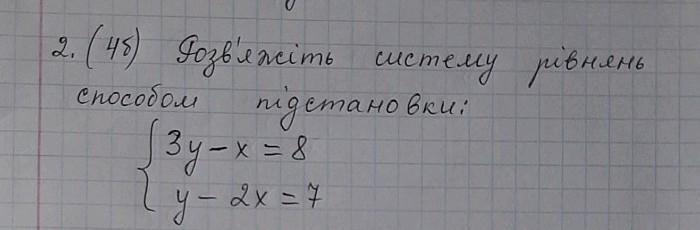 2. (4б) Розв'яжіть систему рівнянь
способом підстановки:
3y - x = 8
y - 2x = 7